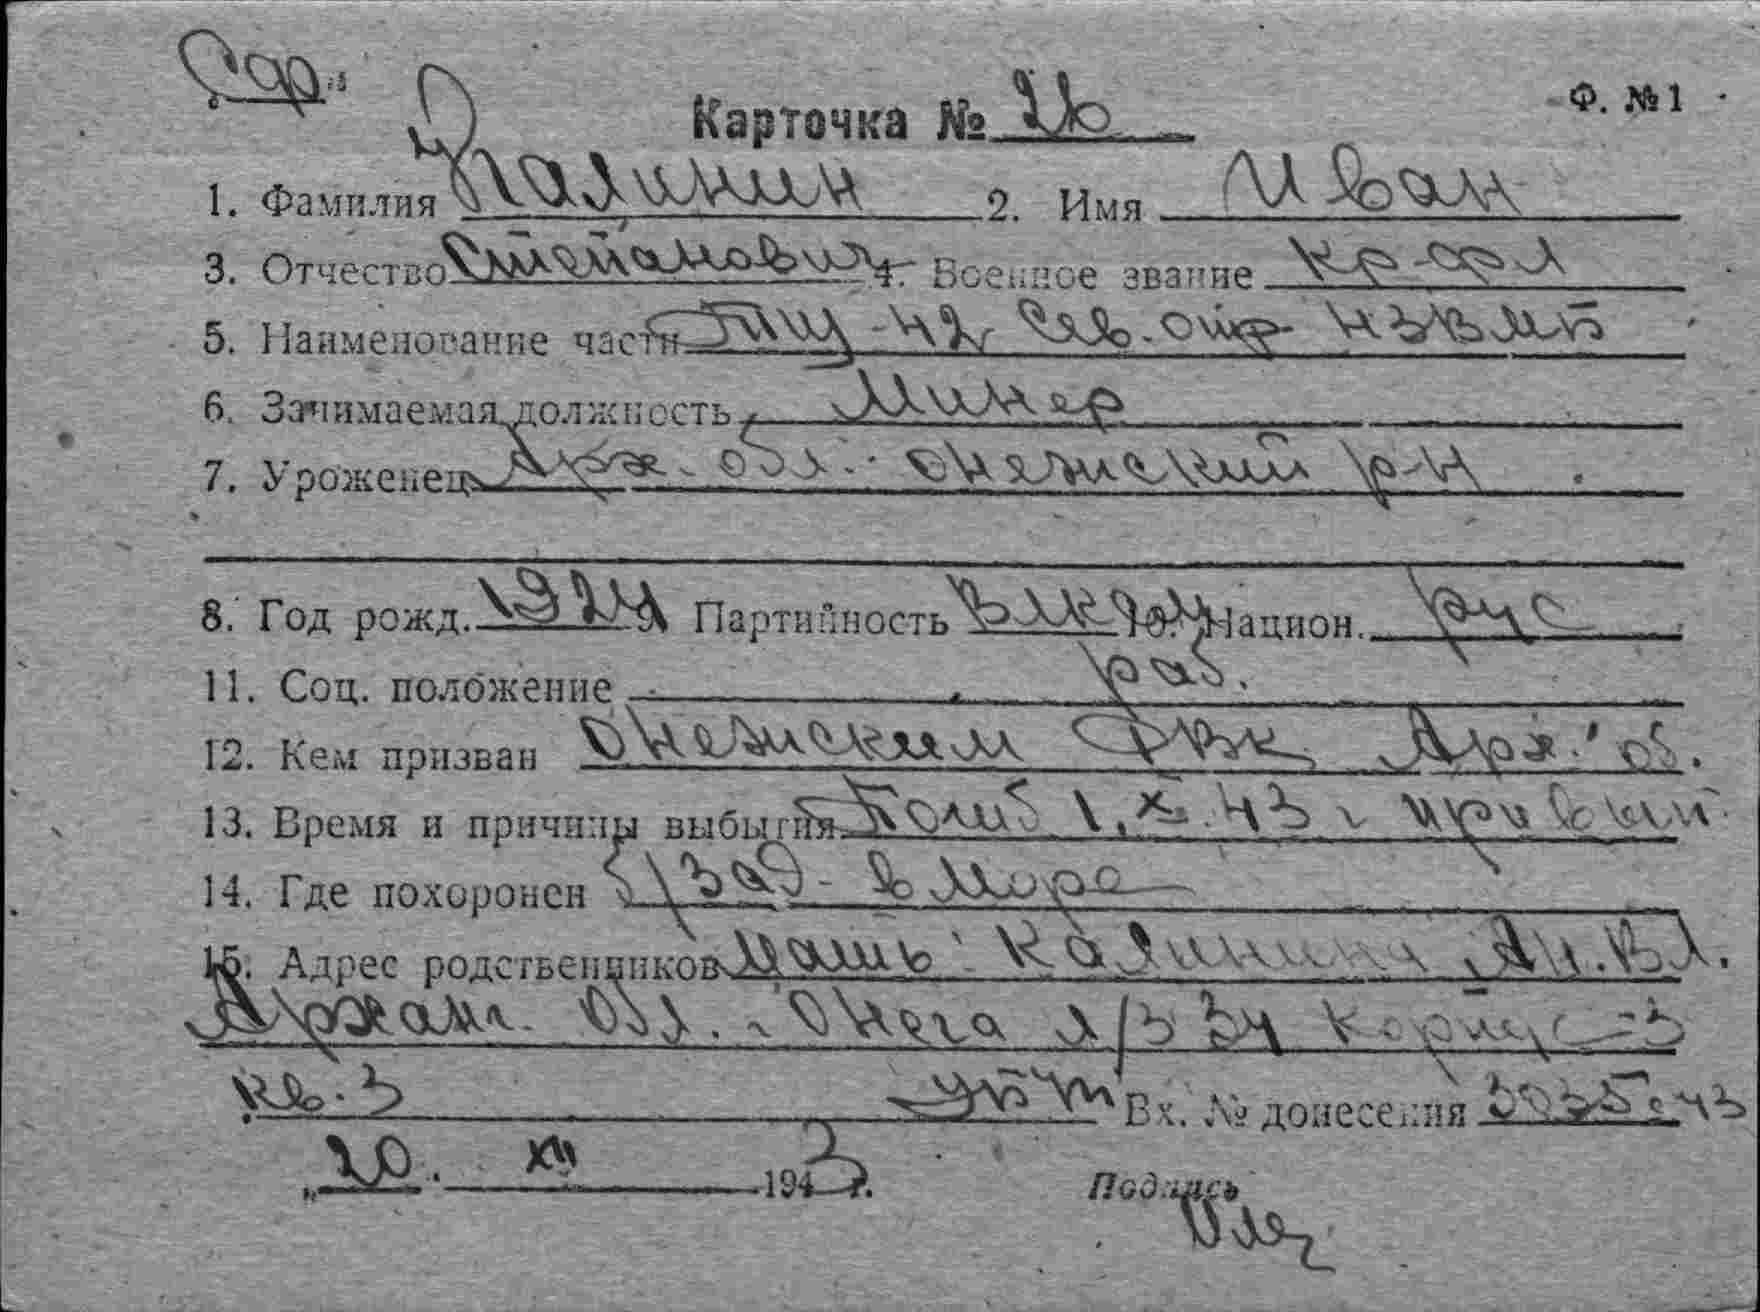 Ф. №1
Карточка № 26
1. Фамилия Калинин 2. Имя Иван
3. Отчество Степанович 4. Военное звание кр-фл
5. Наименование части Тщ-42, Сев. отр НЗВМБ
6. Занимаемая должность Минер
7. Уроженец Арх. обл. Онежский р-н
8. Год рожд. 1924 Партийность ВЛКСМ 10. Национ. рус
11. Соц. положение раб.
12. Кем призван Онежским РВК Арх. об.
13. Время и причины выбытия Погиб 1.X.43 г при вып
14. Где похоронен б/зад- в море
15. Адрес родственников мать: Калинина Ан.Вл.
Арханг. обл. г. Онега л/з 34 корпус-3
кв. 3 Вх. № донесения
„20. XII 1943 г.
Подпись